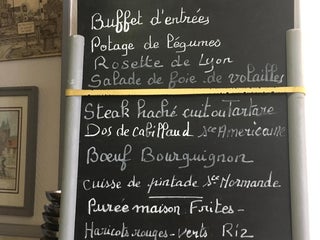 Buffet d'entrées
Potage de Légumes
Rosette de Lyon
Salade de foie de volailles
Steak haché cuit ou Tartare
Dos de cabillaud sce Américaine
Bœuf Bourguignon
cuisse de pintade sce Normande
Purée maison Frites -
Haricots rouges - verts Riz